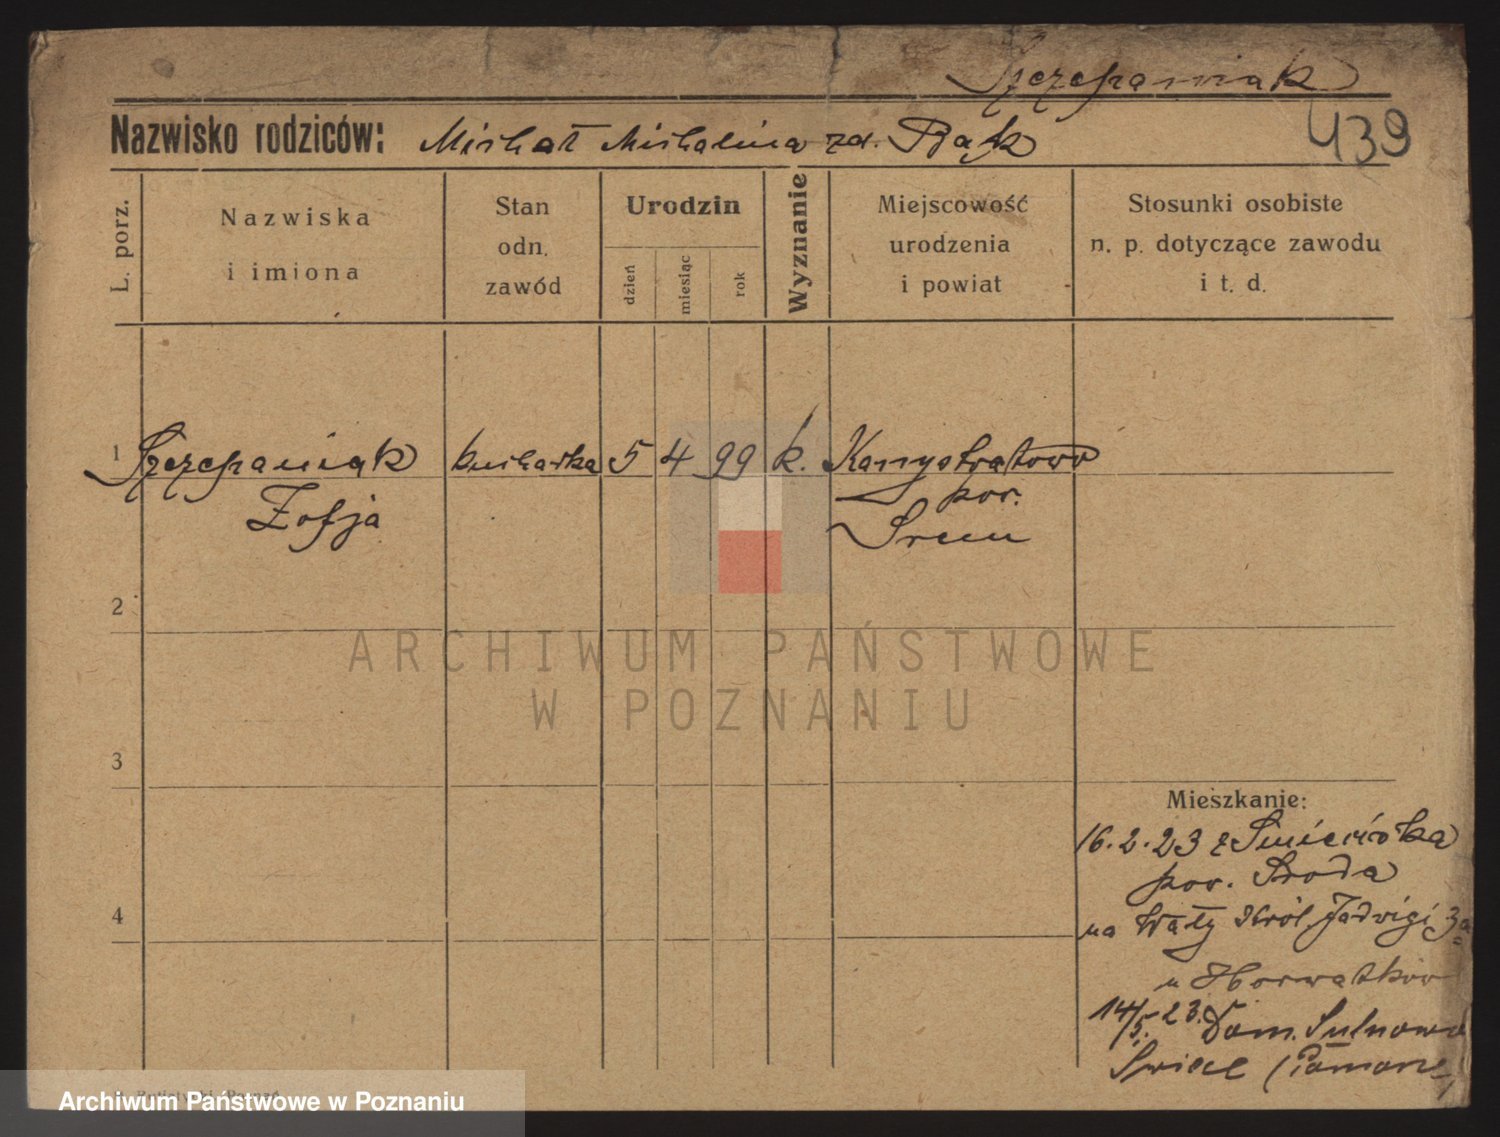 Szczepaniak
Nazwisko rodziców: Michał Michalina zd. Bąk
439
L. porz.
Nazwiska
i imiona
Stan
odn.
zawód
Urodzin
dzień
miesiąc
rok
Wyznanie
Miejscowość
urodzenia
i powiat
Stosunki osobiste
n. p. dotyczące zawodu
i t. d.
1 Szczepaniak kucharka 5 4 99 k.
Zofja
pow.
Śrem
2
ARCHIWUM PAŃSTWOWE
W POZNANIU
3
Mieszkanie:
16.2.23 z
pow. Środa
4
na Wały Król. Jadwigi 3a
u
14/5. 23. Dom. Sulnowo
Świecie (Pomorze)
Archiwum Państwowe w Poznaniu